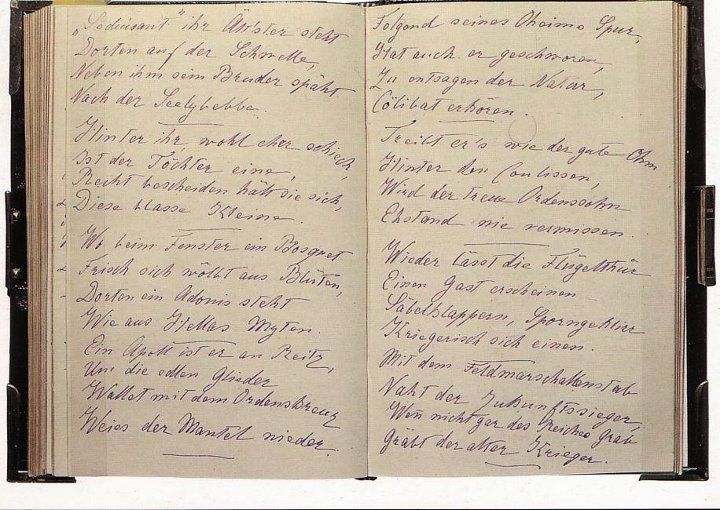 „Seduisant" ihr Ält'ster steht
Dorten auf der Schwelle,
Neben ihm sein Bruder späht
Nach der
Hinter ihr, wohl eher schiech
Ist der Töchter eine,
Recht bescheiden hält sie sich,
Diese blasse Kleine.
Wo beim Fenster ein Bosquet
Frisch sich wölbt aus Blüten,
Dorten ein Adonis steht
Wie aus Hellas Myten.
Ein Apoll ist er an Reitz,
Um die edlen Glieder
Wallet mit dem Ordenskreuz
Weies der Mantel nieder.
Folgend seines Oheims Spur,
Hat auch er geschworen,
Zu entsagen der Natur,
Cölibat erkoren.
Treibt er's wie der gute Ohm
Hinter den Coulissen,
Wird der treue Ordenssohn
Ehstand nie vermissen.
Wieder lässt die Flügelthür
Einen Gast erscheinen
Säbelklappern, Sporngeklirr
Kriegerisch sich einen.
Mit dem Feldmarschallenstab
Naht der Zukunftssieger,
Wen nicht gar des Reiches Grab
Gräbt der alter Krieger.